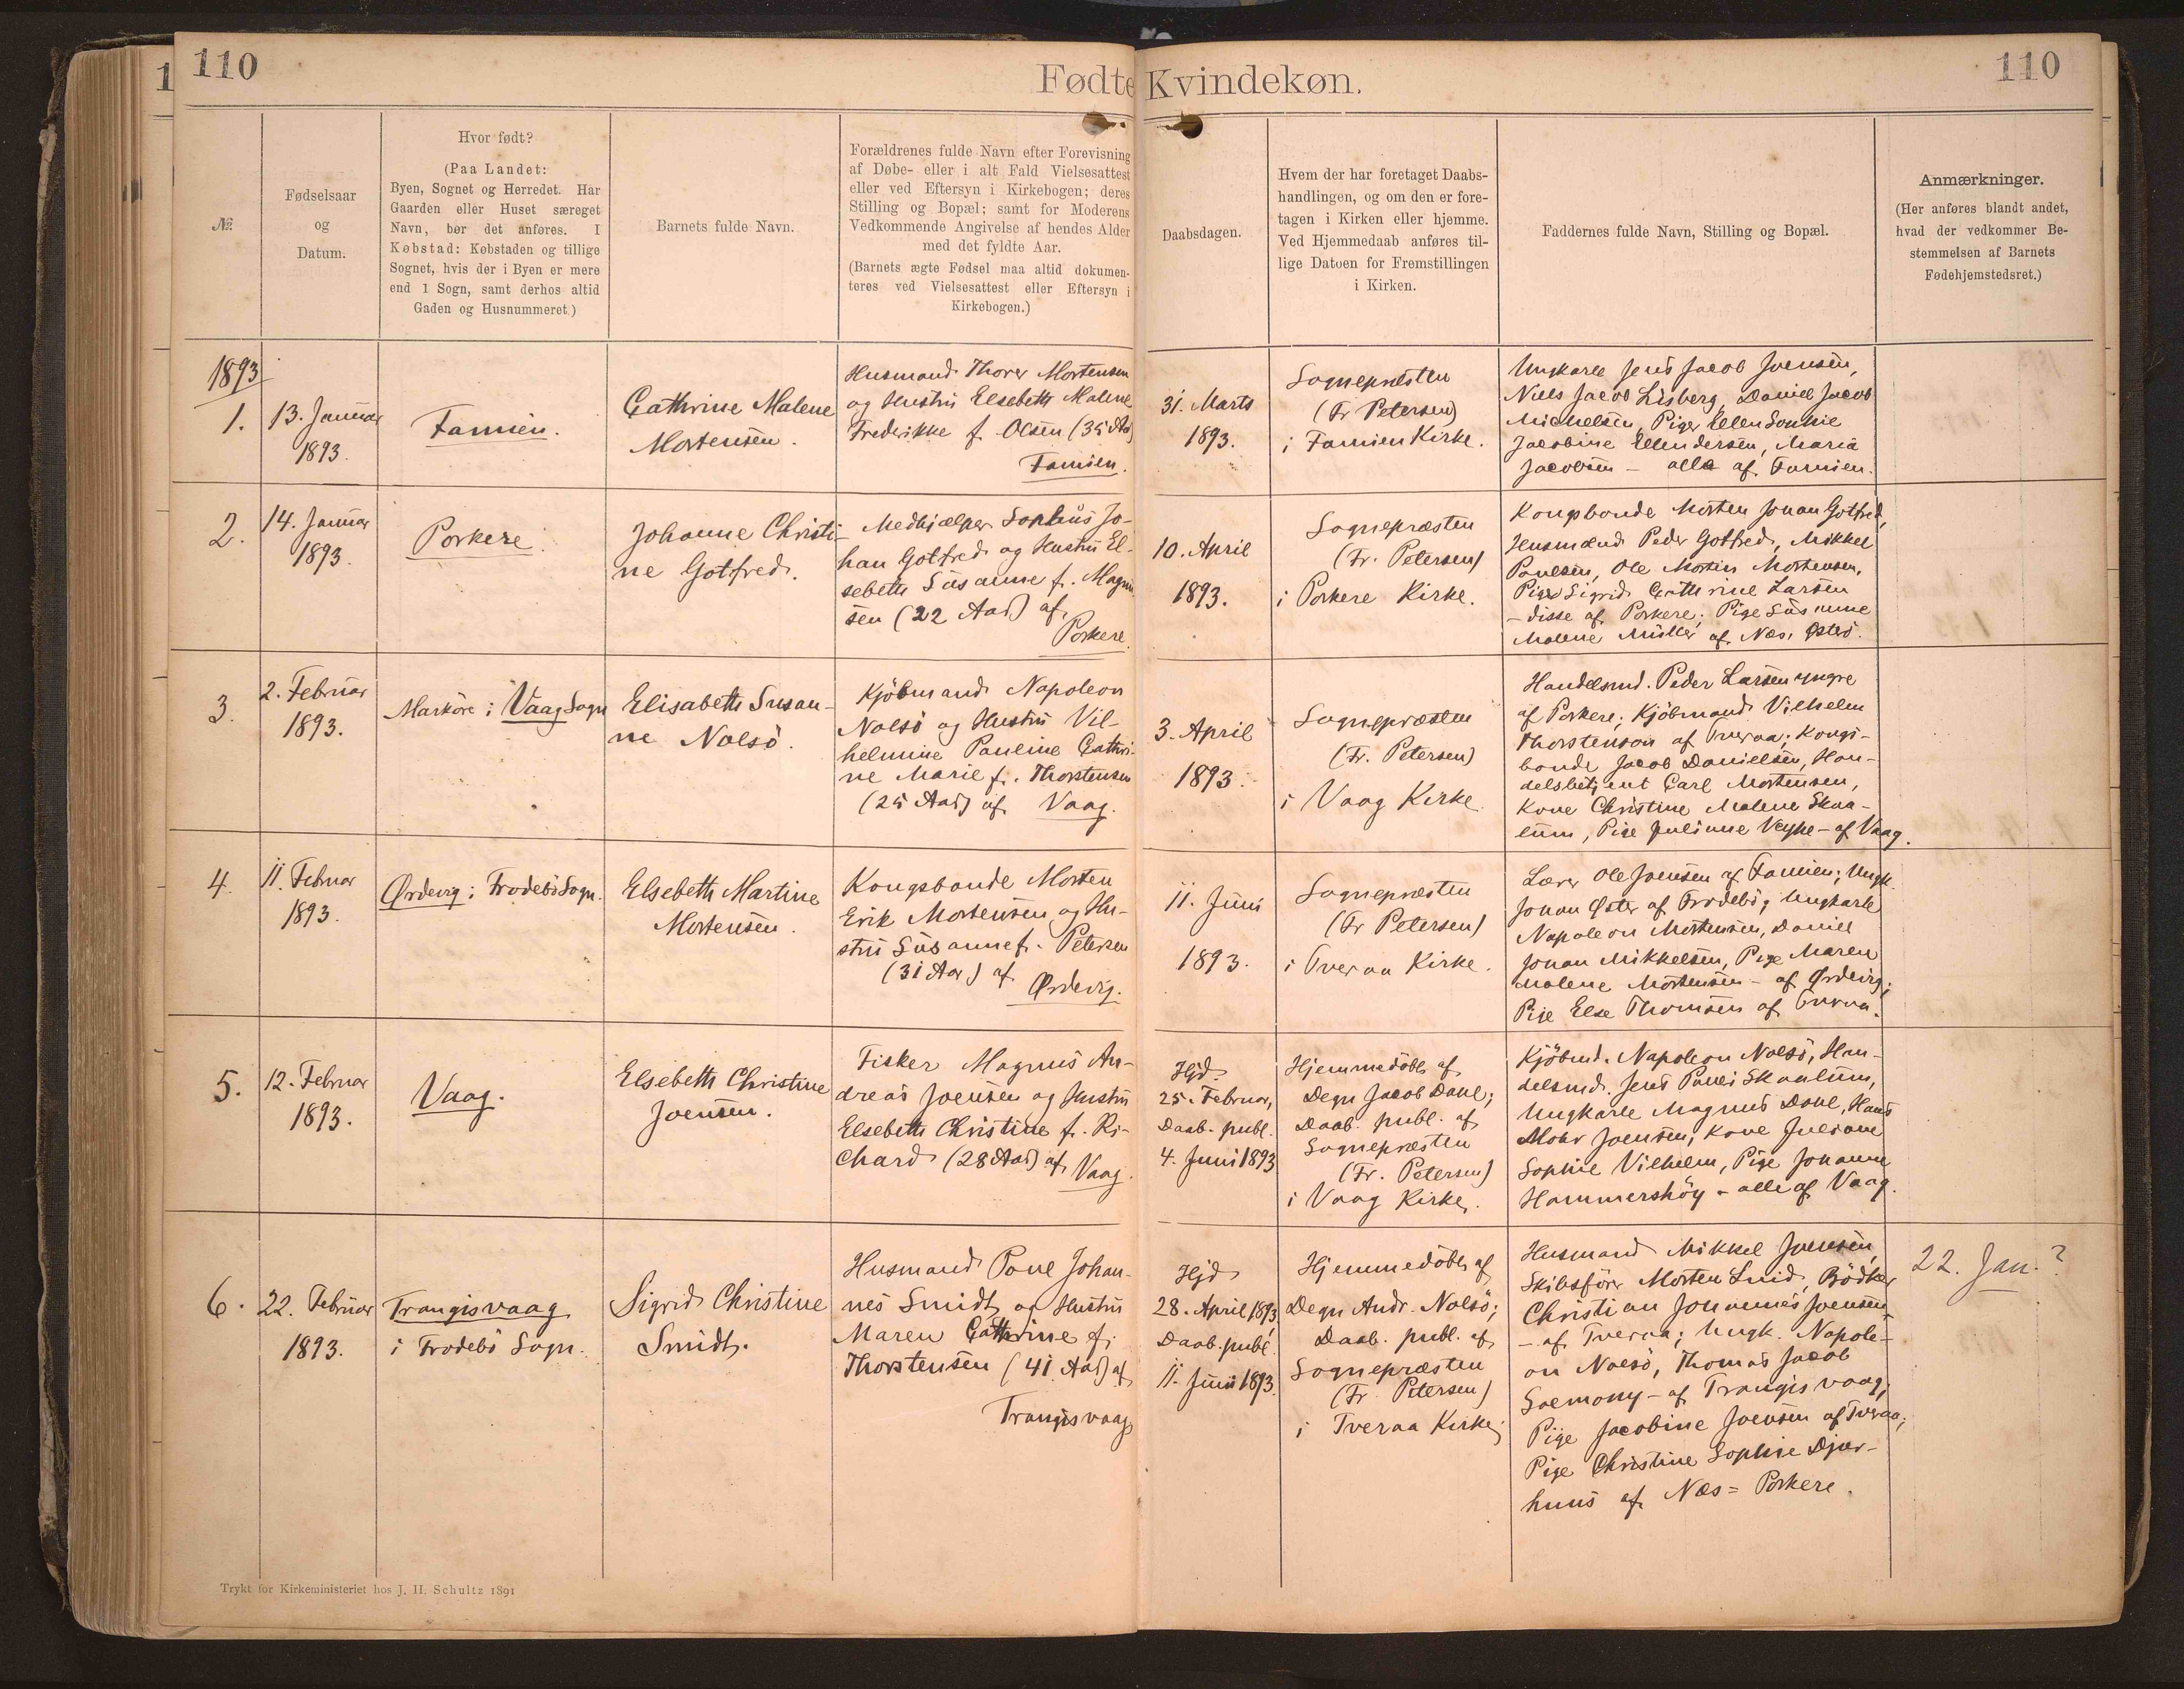 110
Fødte Kvindekøn.
110
№
Fødselsaar
og
Datum.
Hvor født?
(Paa Landet:
Byen, Sognet og Herredet. Har
Gaarden eller Huset særeget
Navn, bør det anføres. I
Købstad: Købstaden og tillige
Sognet, hvis der i Byen er mere
end 1 Sogn, samt derhos altid
Gaden og Husnummeret.)
Barnets fulde Navn.
Forældrenes fulde Navn efter Forevisning
af Døbe- eller i alt Fald Vielsesattest
eller ved Eftersyn i Kirkebogen; deres
Stilling og Bopæl; samt for Moderens
Vedkommende Angivelse af hendes Alder
med det fyldte Aar.
(Barnets ægte Fødsel maa altid dokumen-
teres ved Vielsesattest eller Eftersyn i
Kirkebogen.)
Daabsdagen.
Hvem der har foretaget Daabs-
handlingen, og om den er fore-
tagen i Kirken eller hjemme.
Ved Hjemmedaab anføres til-
lige Datoen for Fremstillingen
i Kirken.
Faddernes fulde Navn, Stilling og Bopæl.
Anmærkninger.
(Her anføres blandt andet,
hvad der vedkommer Be-
stemmelsen af Barnets
Fødehjemstedsret.)
1893
1.
13. Januar
1893.
Famien.
Cathrine Malene
Mortensen.
Husmand Thorer Mortensen
og Hustru Elsebeth Malene
Frederikke f. Olsen (35 Aar)
Famien.
31. Marts
1893.
Sognepræsten
(Fr Petersen)
i Famien Kirke.
Ungkarle Jens Jacob Joensen,
Niels Jacob Lisberg, Daniel Jacob
Michelsen, Piger Ellen Sophie
Jacobine Ellendersen, Maria
Jacobsen - alle af Famien.
2.
14. Januar
1893.
Porkere.
Johanne Christi-
ne Gotfred.
Medhjælper Sophus Jo-
han Gotfred og Hustru El-
sebeth Susanne f. Magnu
sen (22 Aar) af
Porkere.
10. April
1893.
Sognepræsten
(Fr. Petersen)
i Porkere Kirke.
Kongsbonde Morten Johan Gotfred,
Husmænd Peder Gotfred, Mikkel
Poulsen, Ole Morten Mortensen,
Piger Sigrid Cathrine Larsen
- disse af Porkere; Pige Susanne
Malene Müller af Næs, Østerö.
3.
2. Februar
1893.
Marköre i Vaag Sogn
Elisabeth Susan-
ne Nolsö.
Kjöbmand Napoleon
Nolsö og Hustru Vil-
helmine Pauline Cathri-
ne Marie f. Thorstensen
(25 Aar) af Vaag.
3. April
1893.
Sognepræsten
(Fr. Petersen)
i Vaag Kirke.
Handelsmd. Peder Larsen yngre
af Porkere; Kjöbmand Vilhelm
Thorstenson af Tveraa; Kongs-
bonde Jacob Danielsen, Han-
delsbetjent Carl Mortensen,
Kone Christine Malene Skaa-
lum, Pige Juliane Veyhe - af Vaag.
4.
11. Februar
1893.
Ördevig i Frodebö Sogn.
Elsebeth Martine
Mortensen.
Kongsbonde Morten
Erik Mortensen og Hu-
stru Susanne f. Petersen
(31 Aar) af
Ördevig.
11. Juni
1893.
Sognepræsten
(Fr Petersen)
i Tveraa Kirke.
Lærer Ole Joensen af Famien; Ungk.
Johan Öster af Frodebö; Ungkarle
Napoleon Mortensen, Daniel
Johan Mikkelsen, Pige Maren
Malene Mortensen - af Ördevig;
Pige Else Thomsen af Tveraa.
5.
12. Februar
1893.
Vaag.
Elsebeth Christine
Joensen.
Fisker Magnus An-
dreas Joensen og Hustru
Elsebeth Christine f. Ri-
chard (28 Aar) af Vaag.
Hjd.
25. Februar,
Daab. publ.
4. Juni 1893
Hjemmedöbt af
Degn Jacob Dahl;
Daab. publ. af
Sognepræsten
(Fr. Petersen)
i Vaag Kirke.
Kjöbmd. Napoleon Nolsö, Han-
delsmd. Jens Pauli Skaalum,
Ungkarle Magnus Dahl, Hans
Mohr Joensen, Kone Juliane
Sophie Vilhelm, Pige Johanne
Hammershöy - alle af Vaag.
6.
22. Februar
1893.
Trangisvaag
i Frodebö Sogn.
Sigrid Christine
Smidt.
Husmand Poul Johan-
nes Smidt og Hustru
Maren Cathrine f.
Thorstensen (41 Aar) af
Trangisvaag
Hjd
28. April 1893,
Daab. publ.
11. Juni 1893.
Hjemmedöbt af
Degn Andr. Nolsö;
Daab. publ. af
Sognepræsten
(Fr. Petersen)
i Tveraa Kirke;
Husmand Mikkel Joensen,
Skibsförer Morten Smid, Bödker
Christian Johannes Joensen
- af Tveraa; Ungk. Napole-
on Nolsö, Thomas Jacob
Soemony - af Trangisvaag;
Pige Jacobine Joensen af Tveraa;
Pige Christine Sophie Djur-
huus af Næs = Porkere.
22. Jan.?
Trykt for Kirkeministeriet hos J. H. Schultz 1891